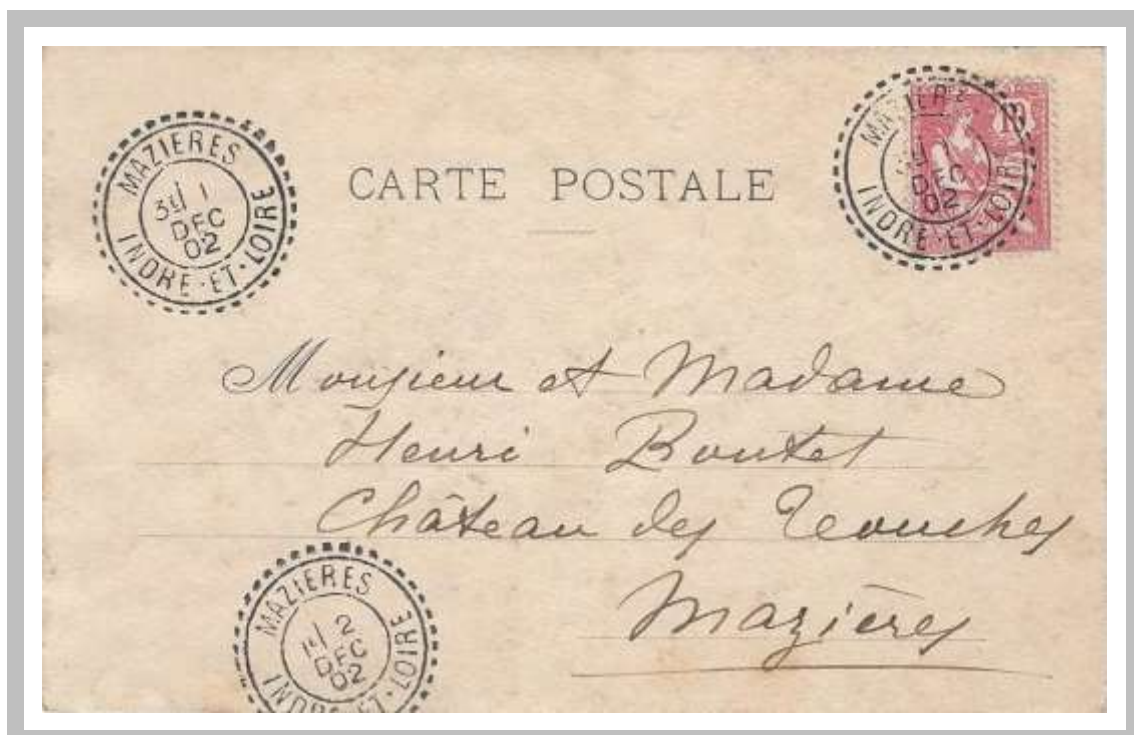 MAZIERES
3E 1
DEC
02
INDRE-ET-LOIRE
CARTE POSTALE
10
DEC
02
INDRE-ET-LOIRE
Monsieur et Madame
Henri Boutet
Château des Touches
Mazières
MAZIERES
1E 2
DEC
02
INDRE-ET-LOIRE